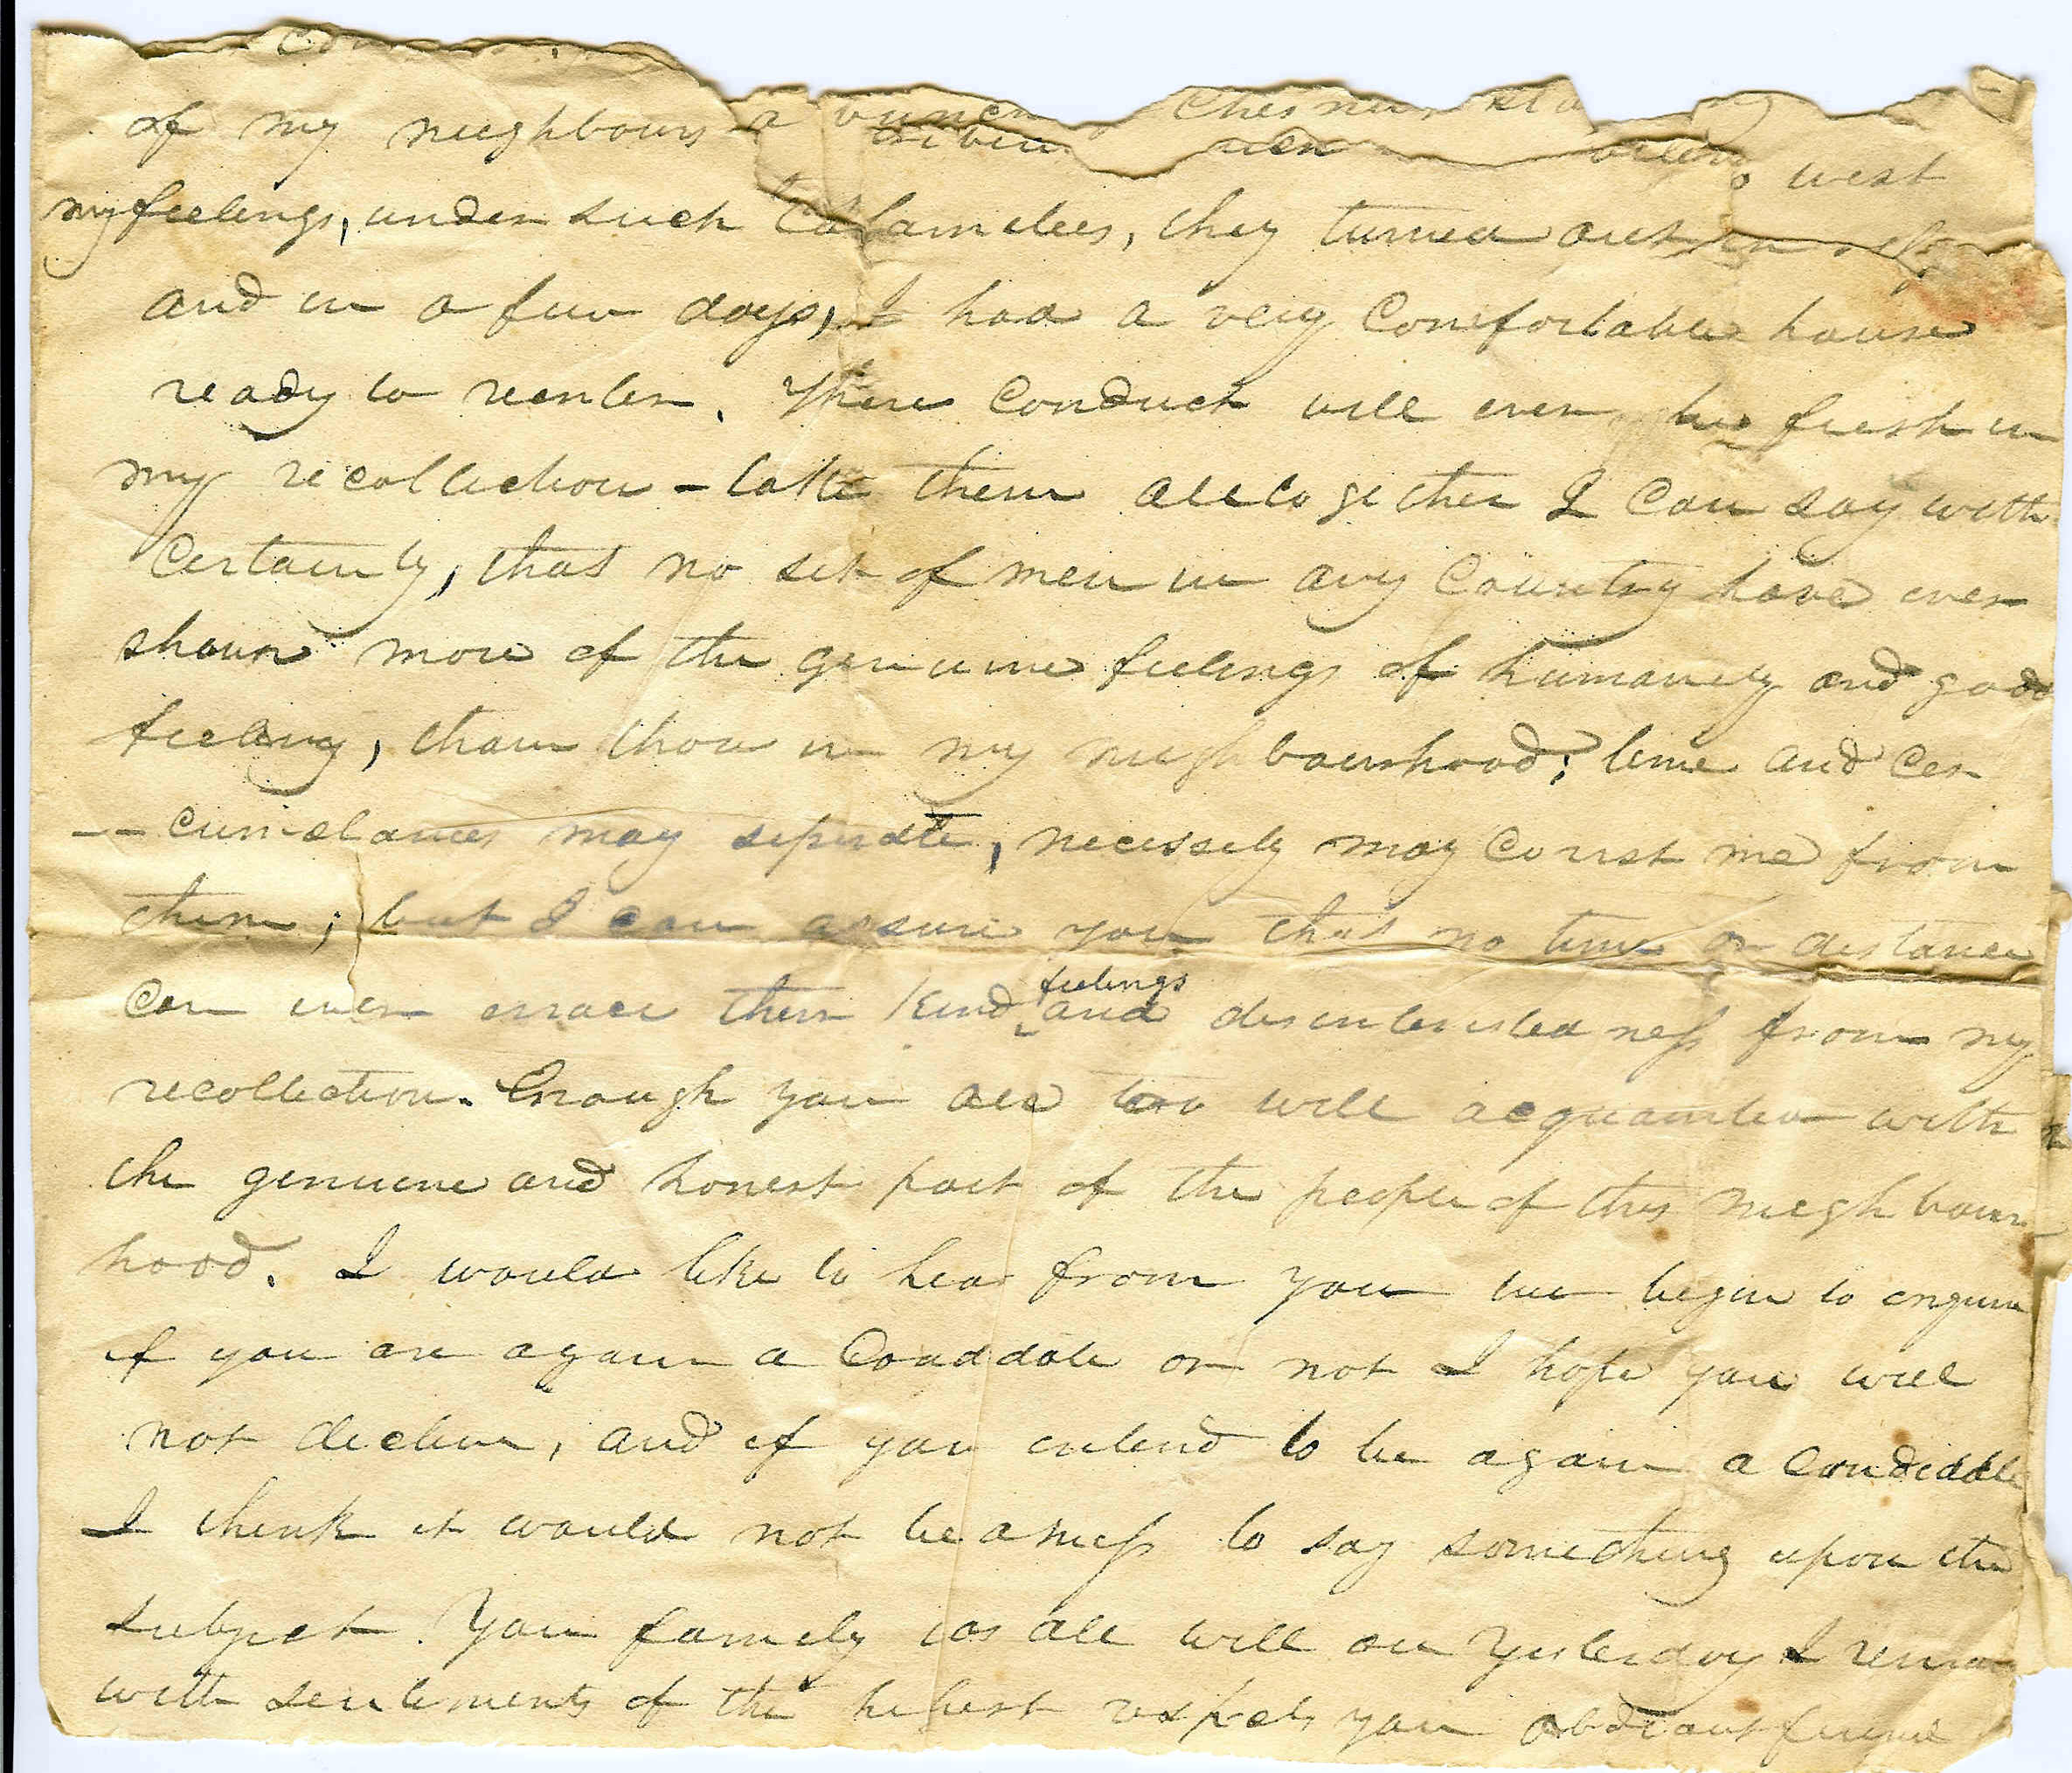 of my neighbours a
west
my feelings, under such Calamelees, they turned out
and in a few days, I had a very Comfortable house
ready to reenter. There Conduct will ever be fresh in
my recollection - take them alltogether I Can say with
Certainty, that no set of men in any Country have ever
shown more of the genuine feelings of humanity and good
feeling, than those in my neighbourhood; time and Cer
-- cumstances may seperate, necessety may me from
them; but I can assure you that no time or distance
Can ever errace there kind feelings and disinterestedness from my
recollection. Enough you are too well acquainted with
the genuine and honest part of the people of this neighbour
hood. I would like to hear from you we begin to enquire
if you are again a Canddate or not I hope you will
not decline, and if you entend to be again a Candidate
I think it would not be amess to say something upon the
subject. Your famely was all well on yesterday I remain
with sentements of the highest respects your friend